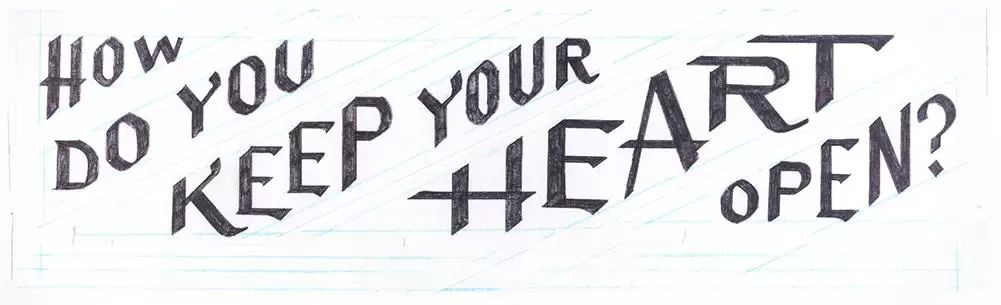 HOW
DO YOU
KEEP YOUR
HEART
OPEN?